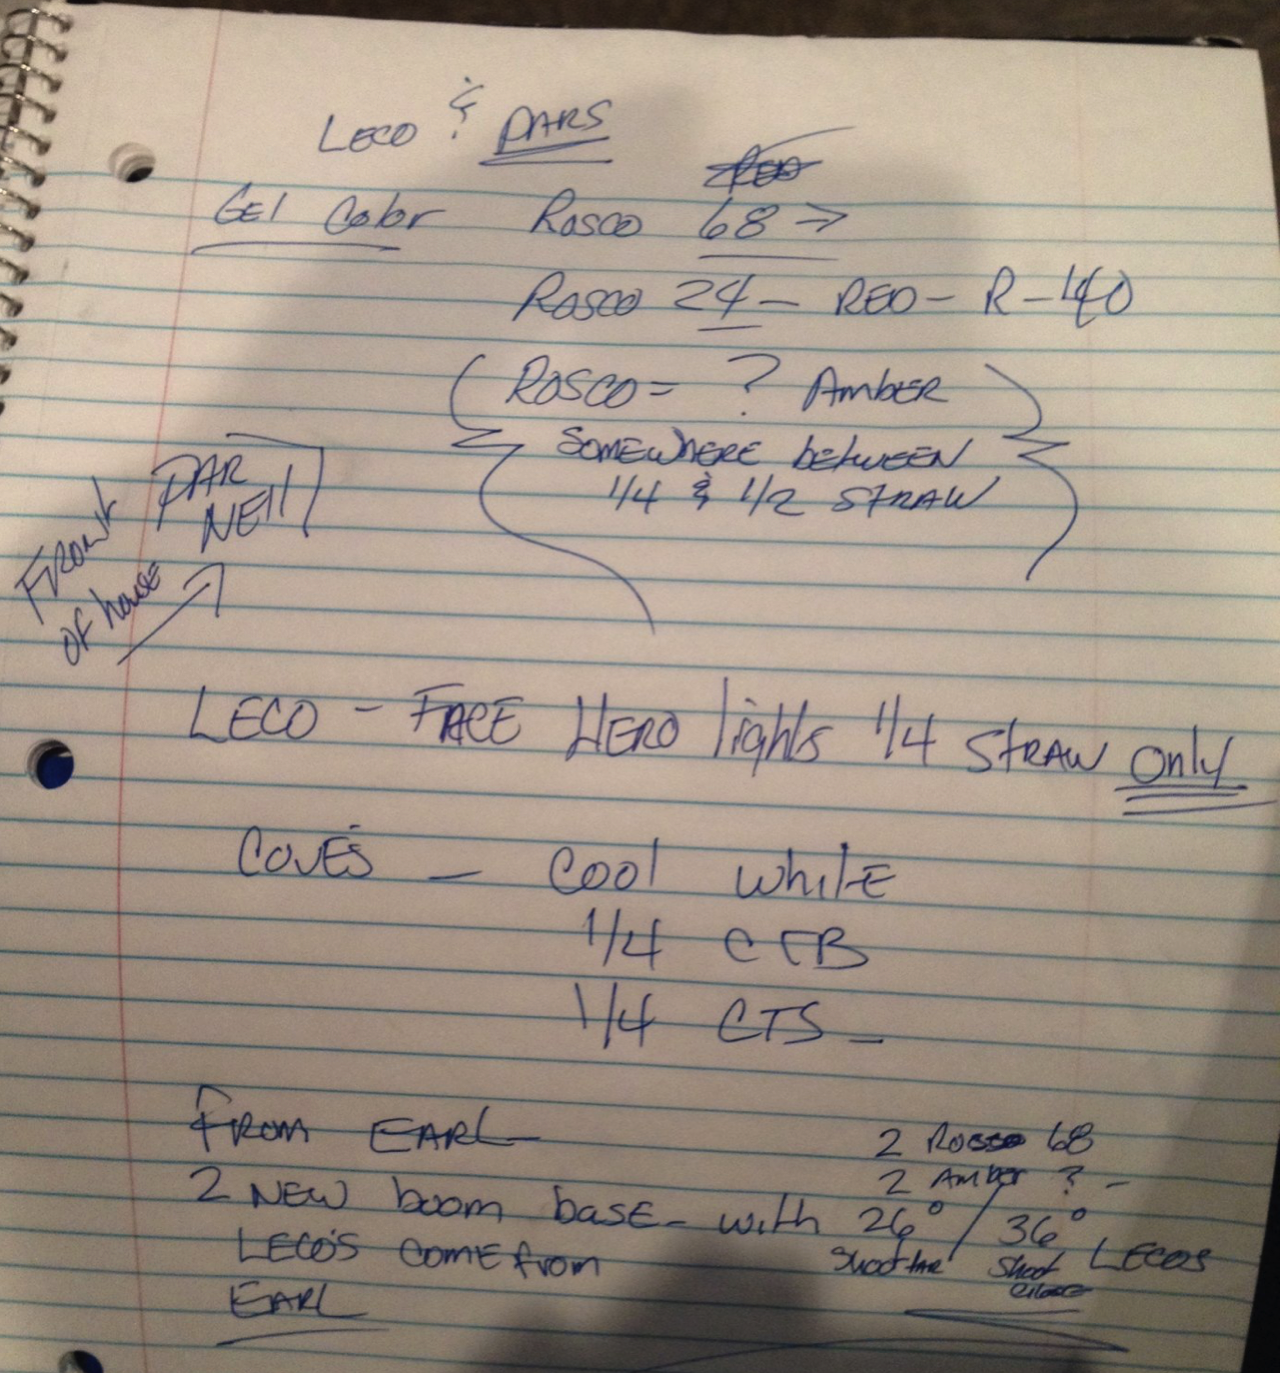 LECO & PARS
GEl Color Rosco 68 →
Rosco 24 — RED — R-140
ROSCO = ? AmbER
SOMEWHERE bETWEEN
1/4 & 1/2 STRAW
PAR
NEll
FRONt
of house
LECO - FACE HERO lights 1/4 STRAW Only
COVE'S — Cool WhitE
1/4 CTB
1/4 CTS —
FROM EARL
2 Rosco 68
2 Amber ? -
2 NEW boom base - with 26° / 36° LECOS
Shoot far Shoot close
LECO'S COME from
EARL